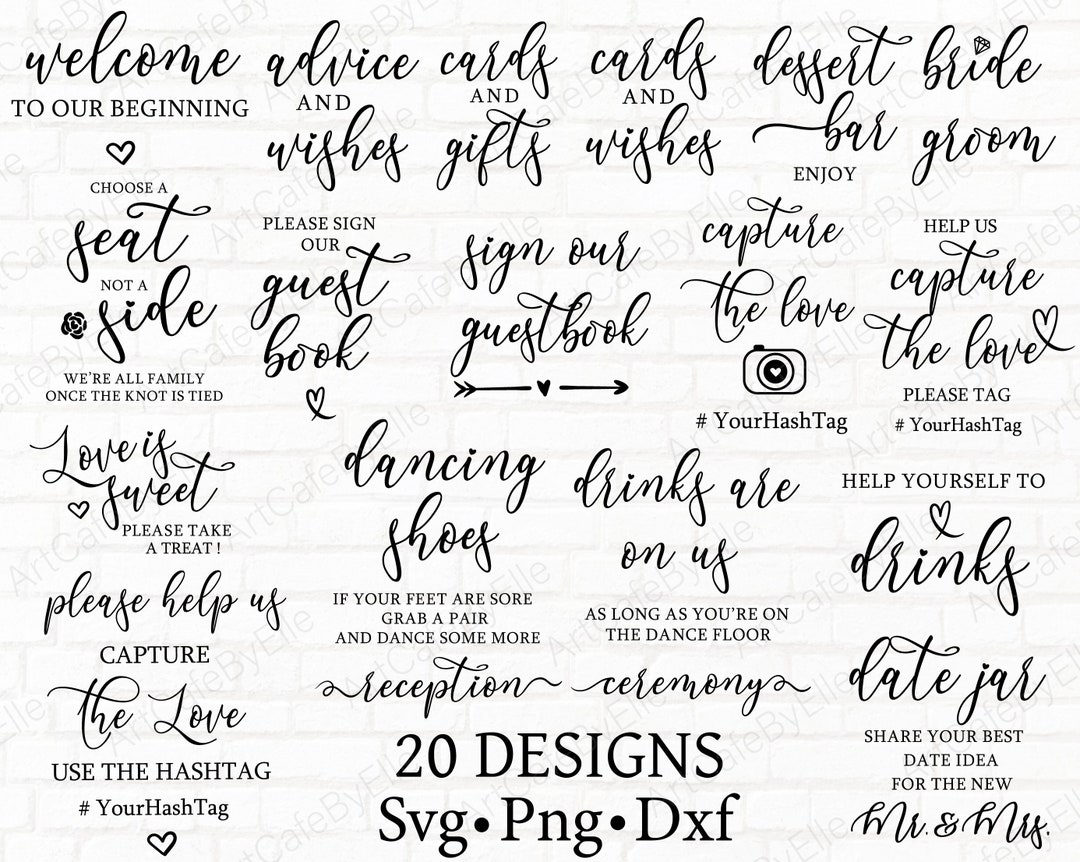 welcome
TO OUR BEGINNING
CHOOSE A
seat
NOT A
side
WE'RE ALL FAMILY
ONCE THE KNOT IS TIED
advice
AND
wishes
cards
AND
gifts
cards
AND
wishes
dessert
bar
ENJOY
bride
groom
PLEASE SIGN
OUR
guest
book
sign our
guestbook
capture
the love
# YourHashTag
HELP US
capture
the love
PLEASE TAG
# YourHashTag
Love is
sweet
PLEASE TAKE
A TREAT !
dancing
shoes
IF YOUR FEET ARE SORE
GRAB A PAIR
AND DANCE SOME MORE
drinks are
on us
AS LONG AS YOU'RE ON
THE DANCE FLOOR
HELP YOURSELF TO
drinks
please help us
CAPTURE
the Love
USE THE HASHTAG
# YourHashTag
reception
ceremony
date jar
SHARE YOUR BEST
DATE IDEA
FOR THE NEW
Mr. & Mrs.
20 DESIGNS
Svg•Png•Dxf
ArtCafeByElle